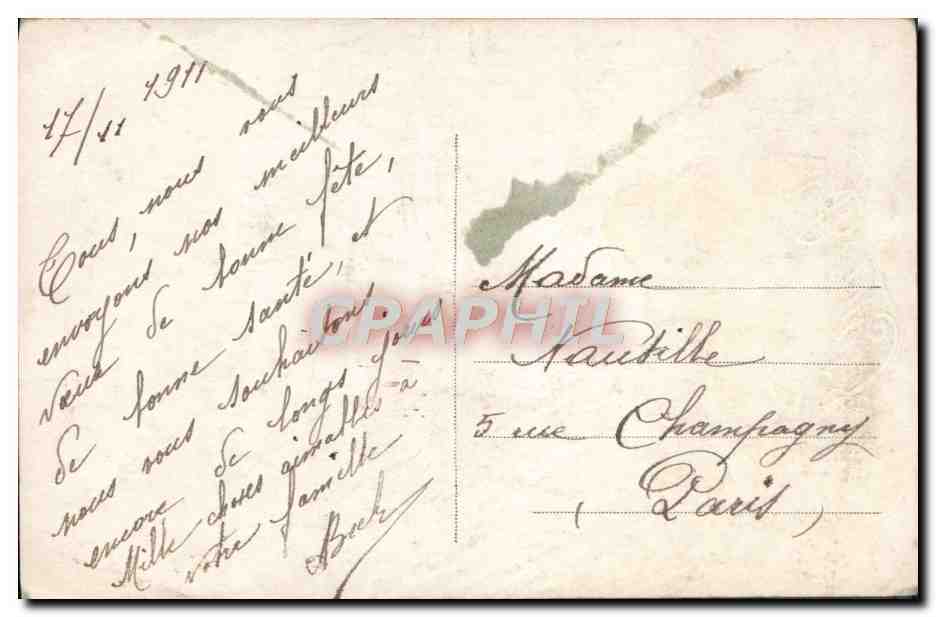 17/11 1911
Tous, nous vous
envoyons nos meilleurs
vœux de bonne fête,
de bonne santé, et
nous vous souhaitons
encore de longs jours
Mille choses aimables à
votre famille
Madame
5 rue Champagny
(Paris)
CPAPHIL